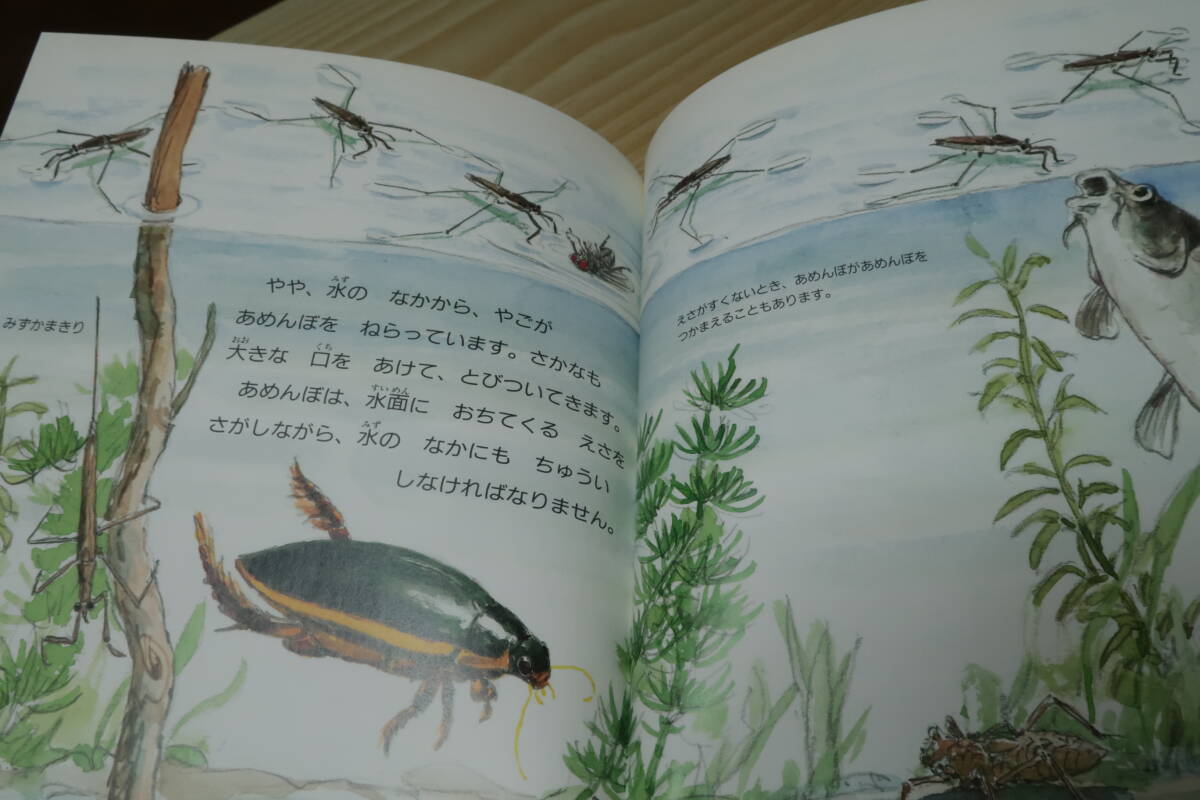 みずかまきり
やや、水の なかから、やごが
あめんぼを ねらっています。さかなも
大きな 口を あけて、とびついてきます。
あめんぼは、水面に おちてくる えさを
さがしながら、水の なかにも ちゅうい
しなければなりません。
えさがすくないとき、あめんぼがあめんぼを
つかまえることもあります。